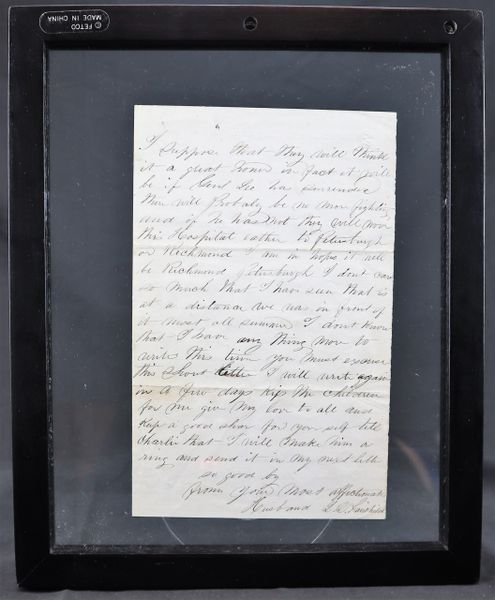 © FETCO
MADE IN CHINA
I suppose that they will think
it a great honor in fact it will
be if Genl Lee has surrender
there will probaly be no more fighting
and if he has not they will move
this Hospital eather to Petersburgh
or Richmond I am in hopes it will
be Richmond Petersburgh I dont care
so much that I have seen that is
at a distance we was in front of
it most all summer I dont know
that I have any thing more to
write this time you must excuse
this short letter I will write again
in a few days kiss the children
for me give my love to all and
keep a good shear for you self tell
Charlie that I will make him a
ring and send it in my next lett
so good by
from your most affectionate
Husband